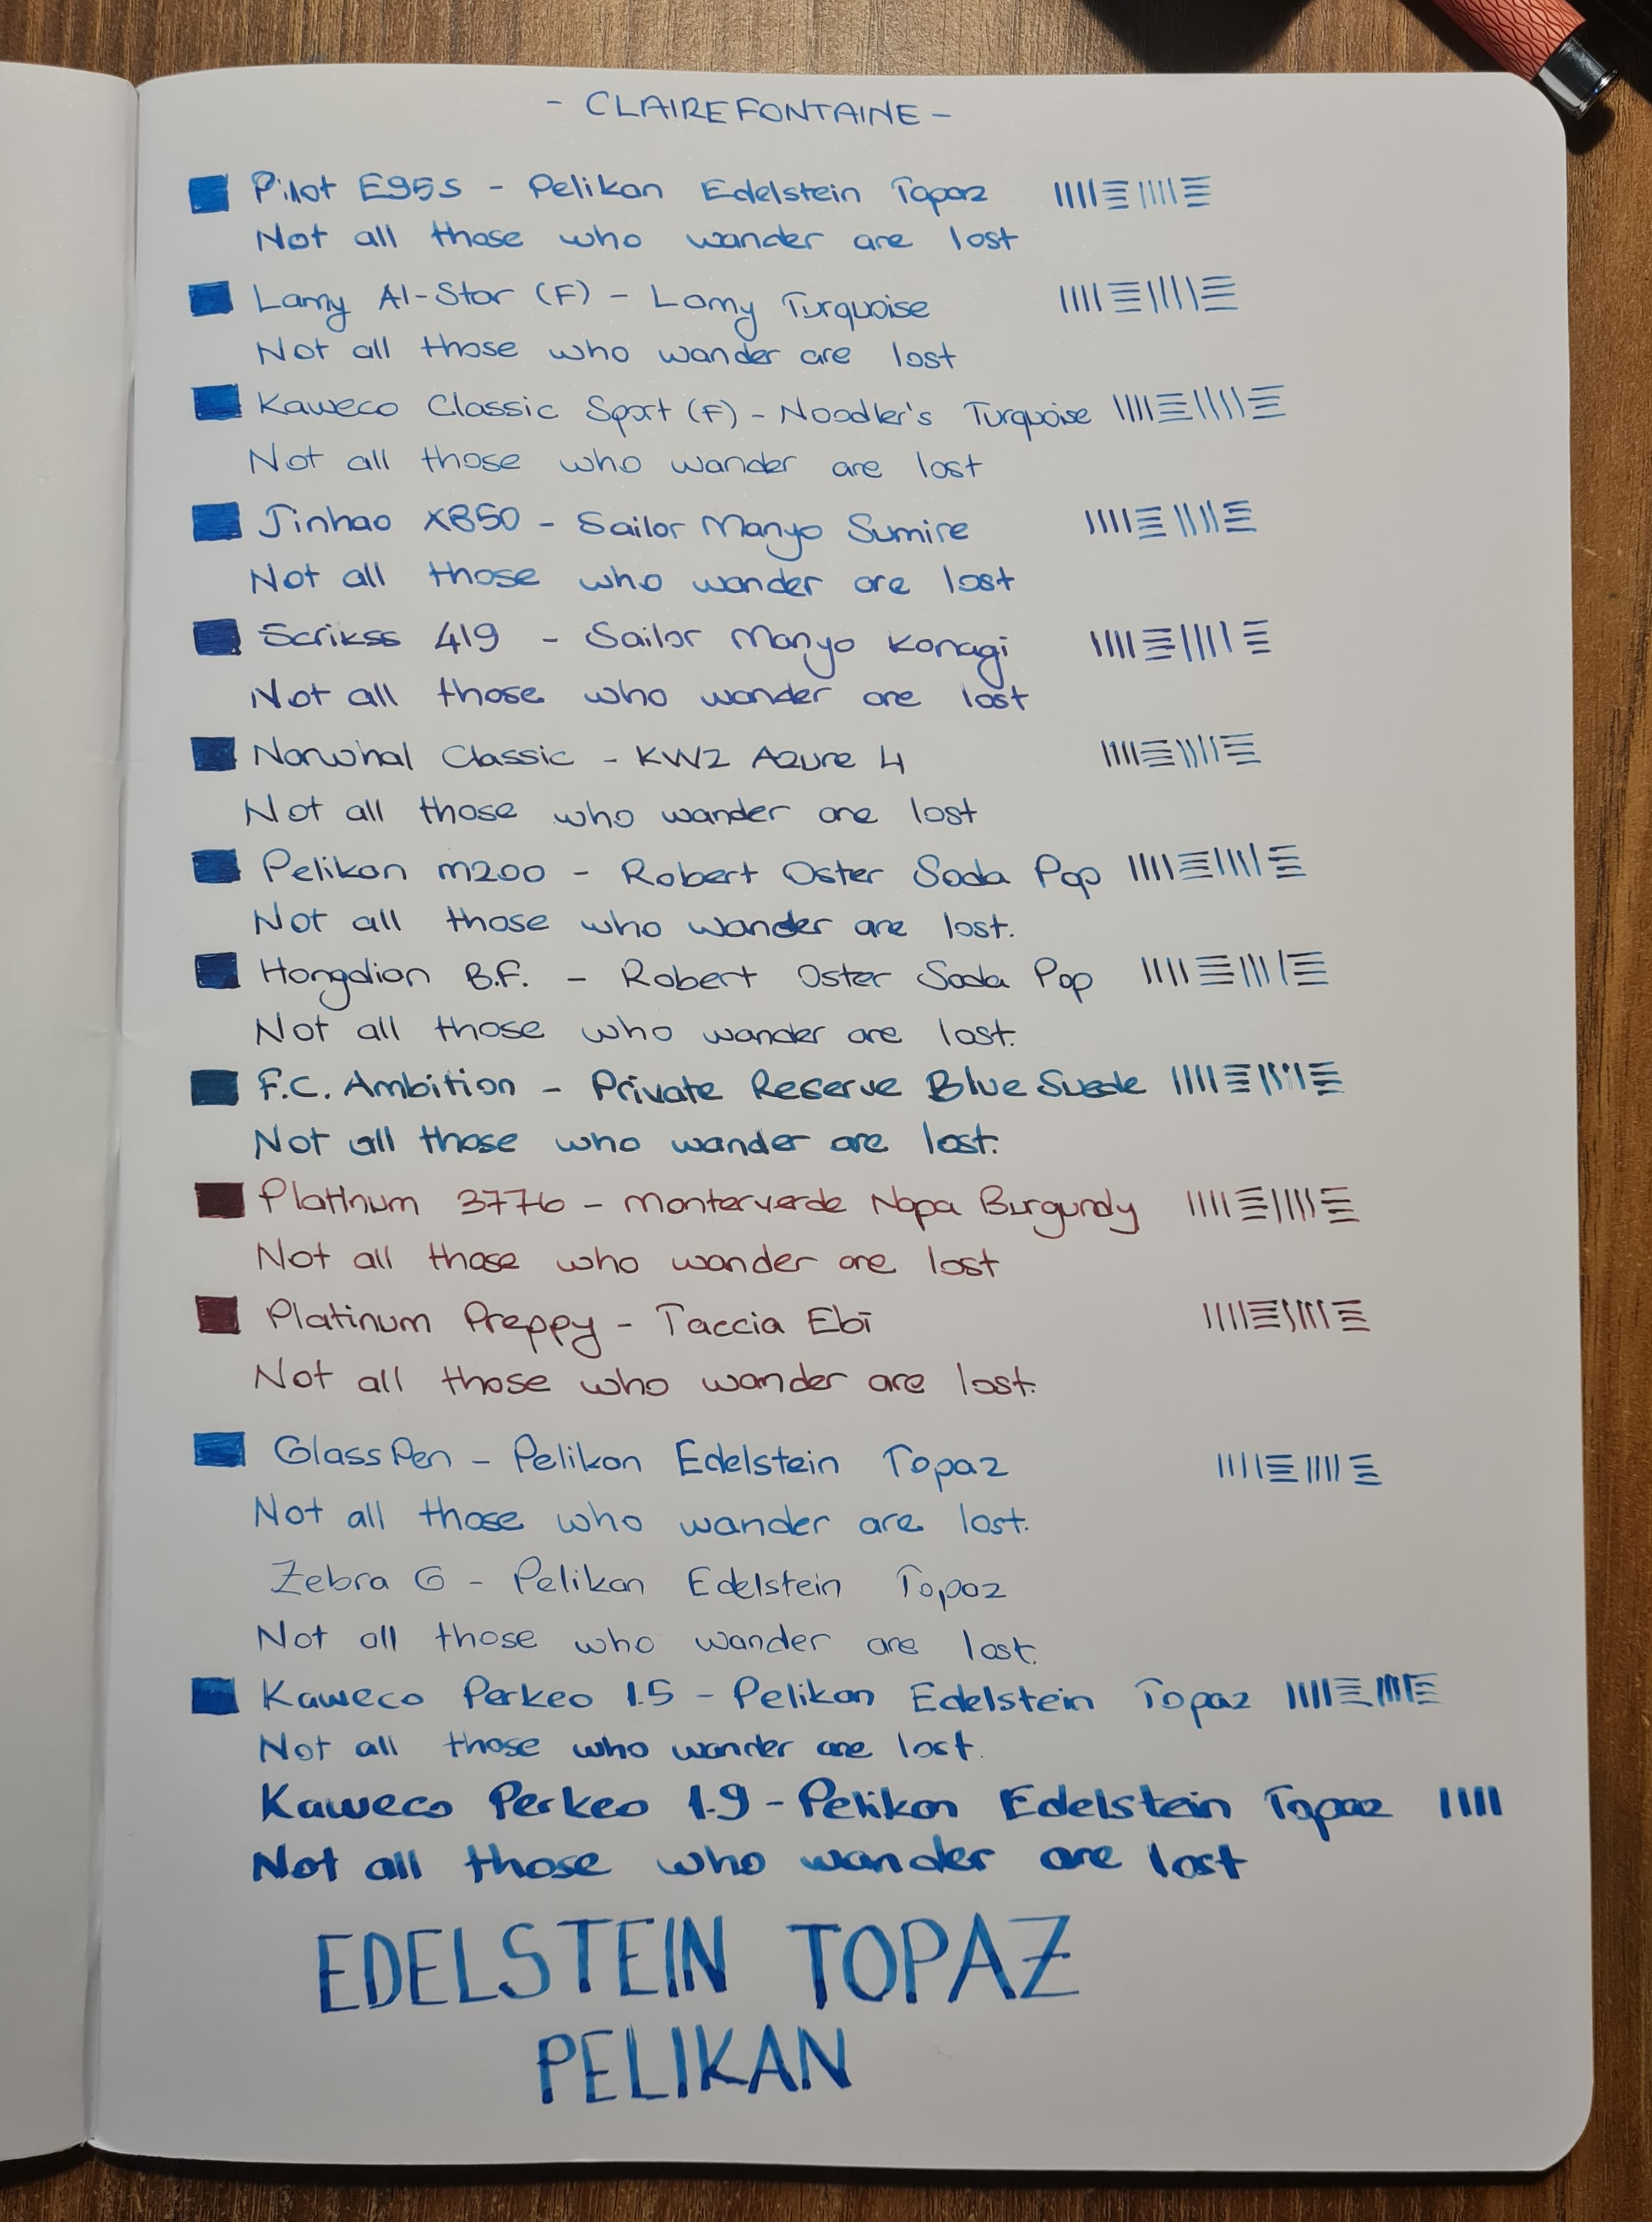 - CLAIREFONTAINE -
Pilot E95S - Pelikan Edelstein Topaz
Not all those who wander are lost
Lamy Al-Star (F) - Lamy Turquoise
Not all those who wander are lost
Kaweco Classic Sport (F) - Noodler's Turquoise
Not all those who wander are lost
Jinhao X850 - Sailor Manyo Sumire
Not all those who wander are lost
Scrikss 419 - Sailor Manyo Konagi
Not all those who wander are lost
Narwhal Classic - KWZ Azure 4
Not all those who wander are lost
Pelikan m200 - Robert Oster Soda Pop
Not all those who wander are lost.
Hongdian B.F. - Robert Oster Soda Pop
Not all those who wander are lost.
F.C. Ambition - Private Reserve Blue Suede
Not all those who wander are lost.
Platinum 3776 - Monterverde Napa Burgundy
Not all those who wander are lost
Platinum Preppy - Taccia Ebi
Not all those who wander are lost.
Glass Pen - Pelikan Edelstein Topaz
Not all those who wander are lost.
Zebra G - Pelikan Edelstein Topaz
Not all those who wander are lost.
Kaweco Perkeo 1.5 - Pelikan Edelstein Topaz
Not all those who wander are lost.
Kaweco Perkeo 1.9 - Pelikan Edelstein Topaz
Not all those who wander are lost
EDELSTEIN TOPAZ
PELIKAN